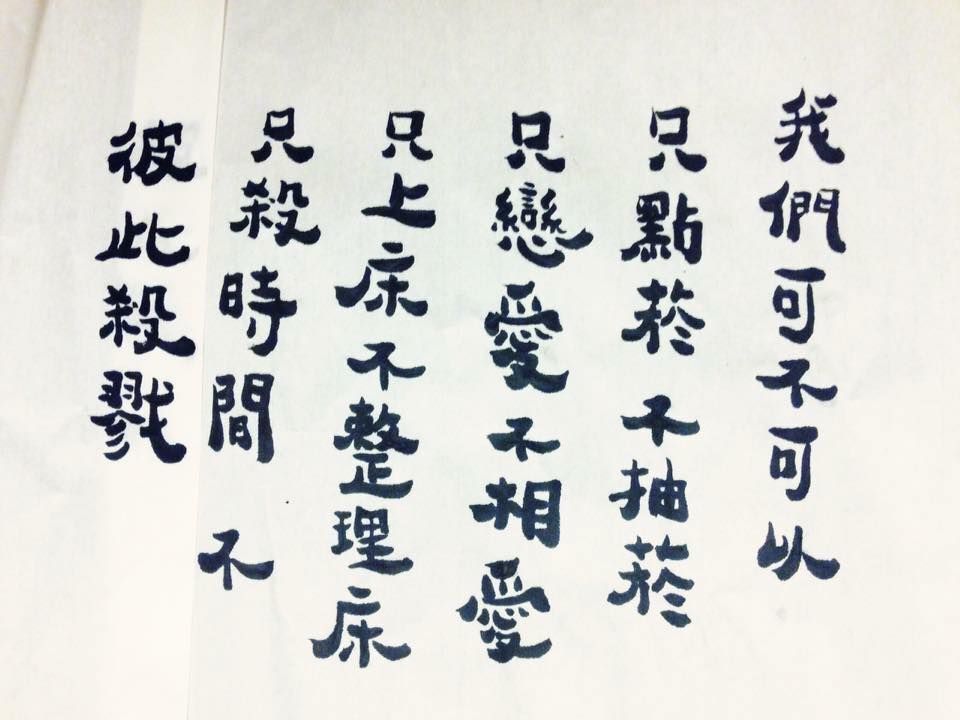 我們可不可以
只點菸不抽菸
只戀愛不相愛
只上床不整理床
只殺時間不
彼此殺戮